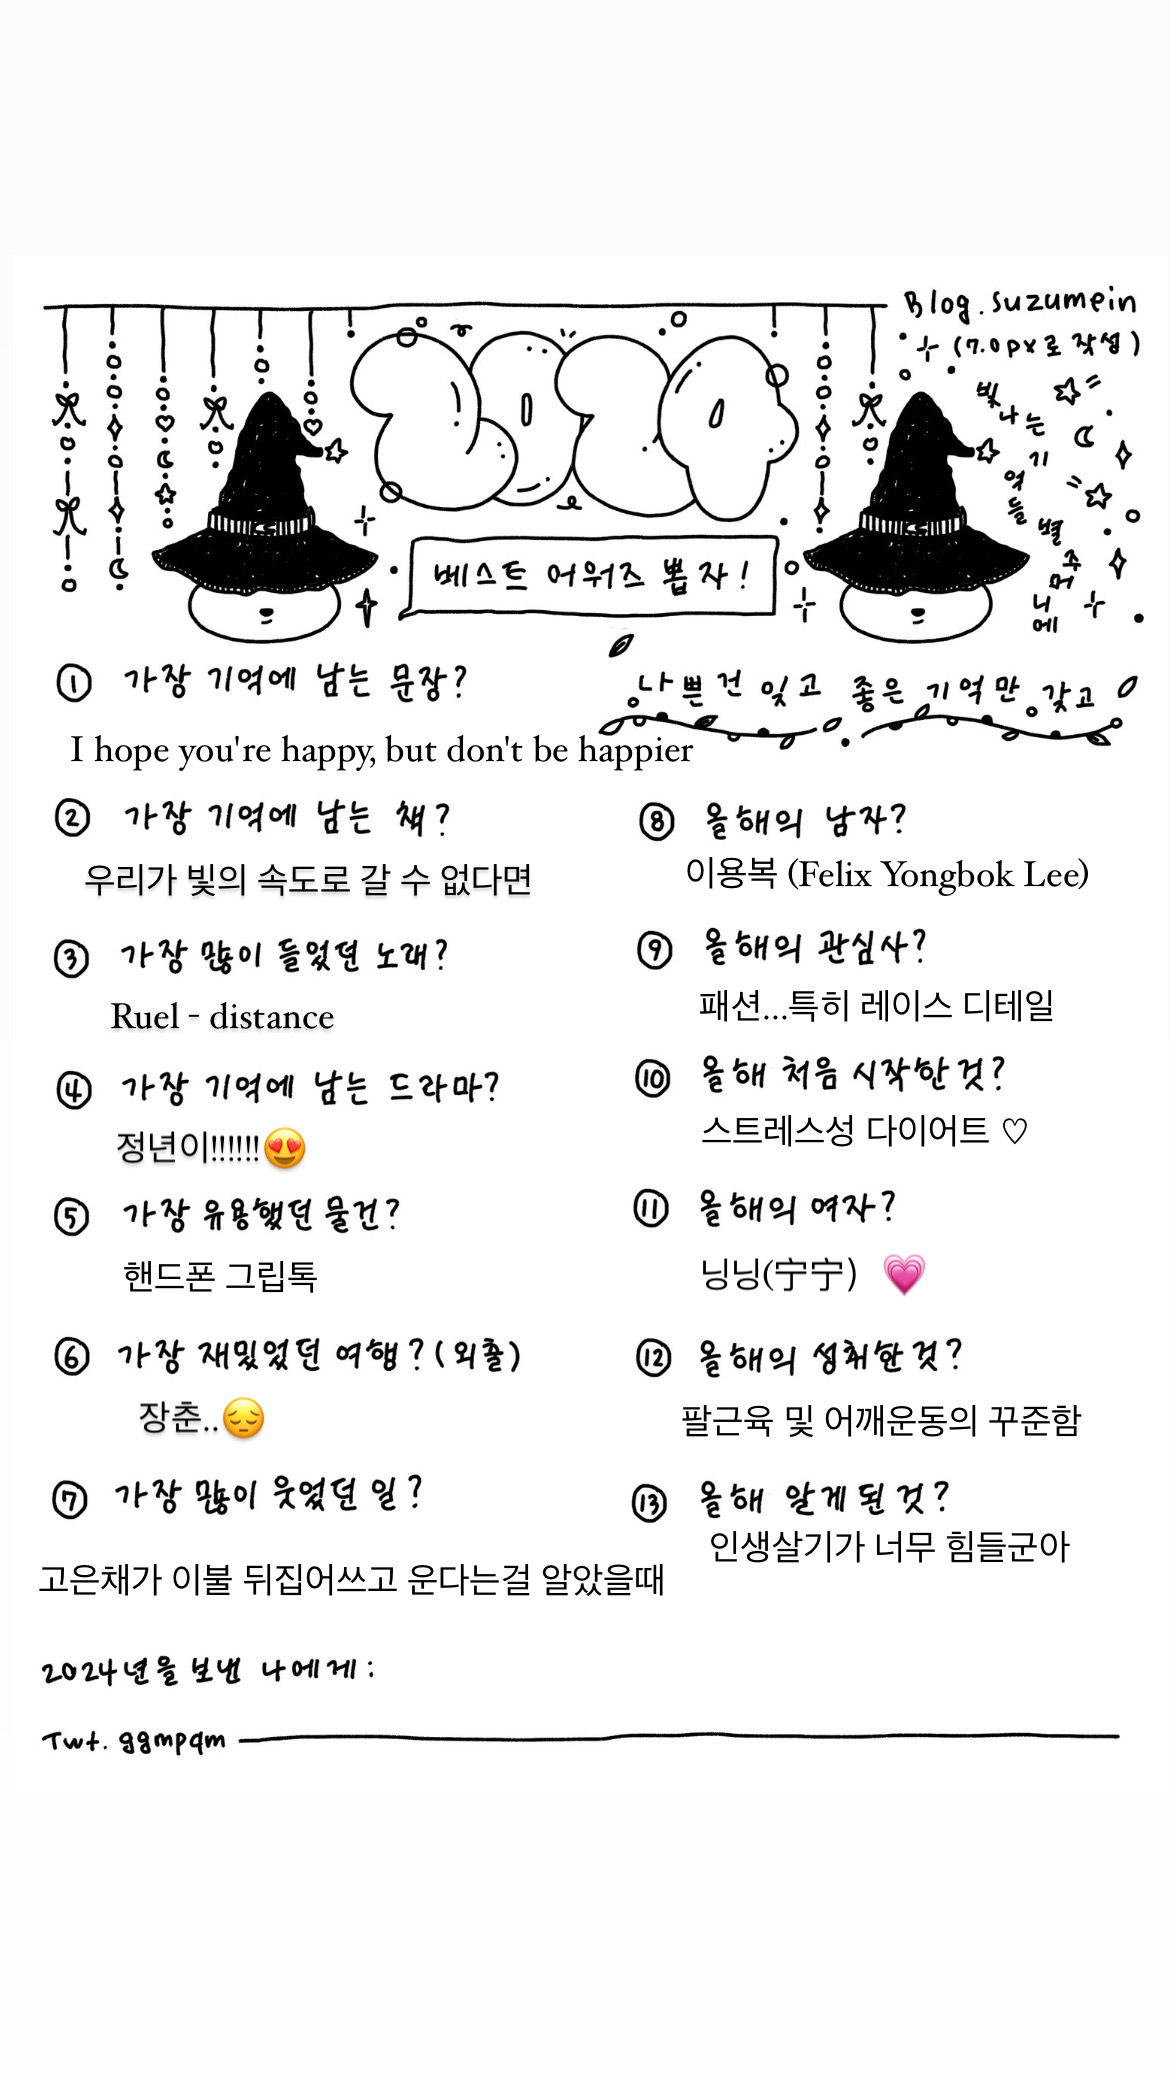 Blog.suzumein
(7.0px로 작성)
2024
베스트 어워즈 뽑자!
빛나는 기억들 별주머니에
나쁜건 잊고 좋은 기억만 갖고
① 가장 기억에 남는 문장?
I hope you're happy, but don't be happier
② 가장 기억에 남는 책?
우리가 빛의 속도로 갈 수 없다면
③ 가장 많이 들었던 노래?
Ruel - distance
④ 가장 기억에 남는 드라마?
정년이!!!!!!😍
⑤ 가장 유용했던 물건?
핸드폰 그립톡
⑥ 가장 재밌었던 여행?(외출)
장춘..😔
⑦ 가장 많이 웃었던 일?
고은채가 이불 뒤집어쓰고 운다는걸 알았을때
⑧ 올해의 남자?
이용복 (Felix Yongbok Lee)
⑨ 올해의 관심사?
패션...특히 레이스 디테일
⑩ 올해 처음 시작한것?
스트레스성 다이어트 ♡
⑪ 올해의 여자?
닝닝(宁宁) 💗
⑫ 올해의 성취한것?
팔근육 및 어깨운동의 꾸준함
⑬ 올해 알게된것?
인생살기가 너무 힘들군아
2024년을 보낸 나에게:
Twt. ggmpqm